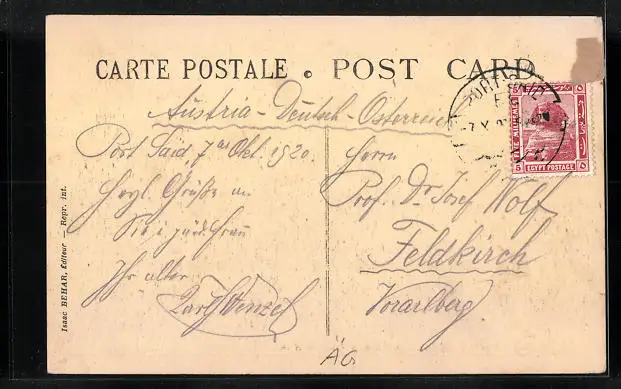 CARTE POSTALE • POST CARD
Austria - Deutsch-Österreich
Port Said, 7. Okt. 1920.
Hzgl. Grüße an
Sie
Frau
Ihr alter
Karl Wenzel
Herrn
Prof. Dr. Josef Wolf
Feldkirch
Vorarlberg
PORT SAID
FIVE MILLIEMES
5
EGYPT POSTAGE
Isaac BEHAR, Éditeur — Repr. int.
ÄG